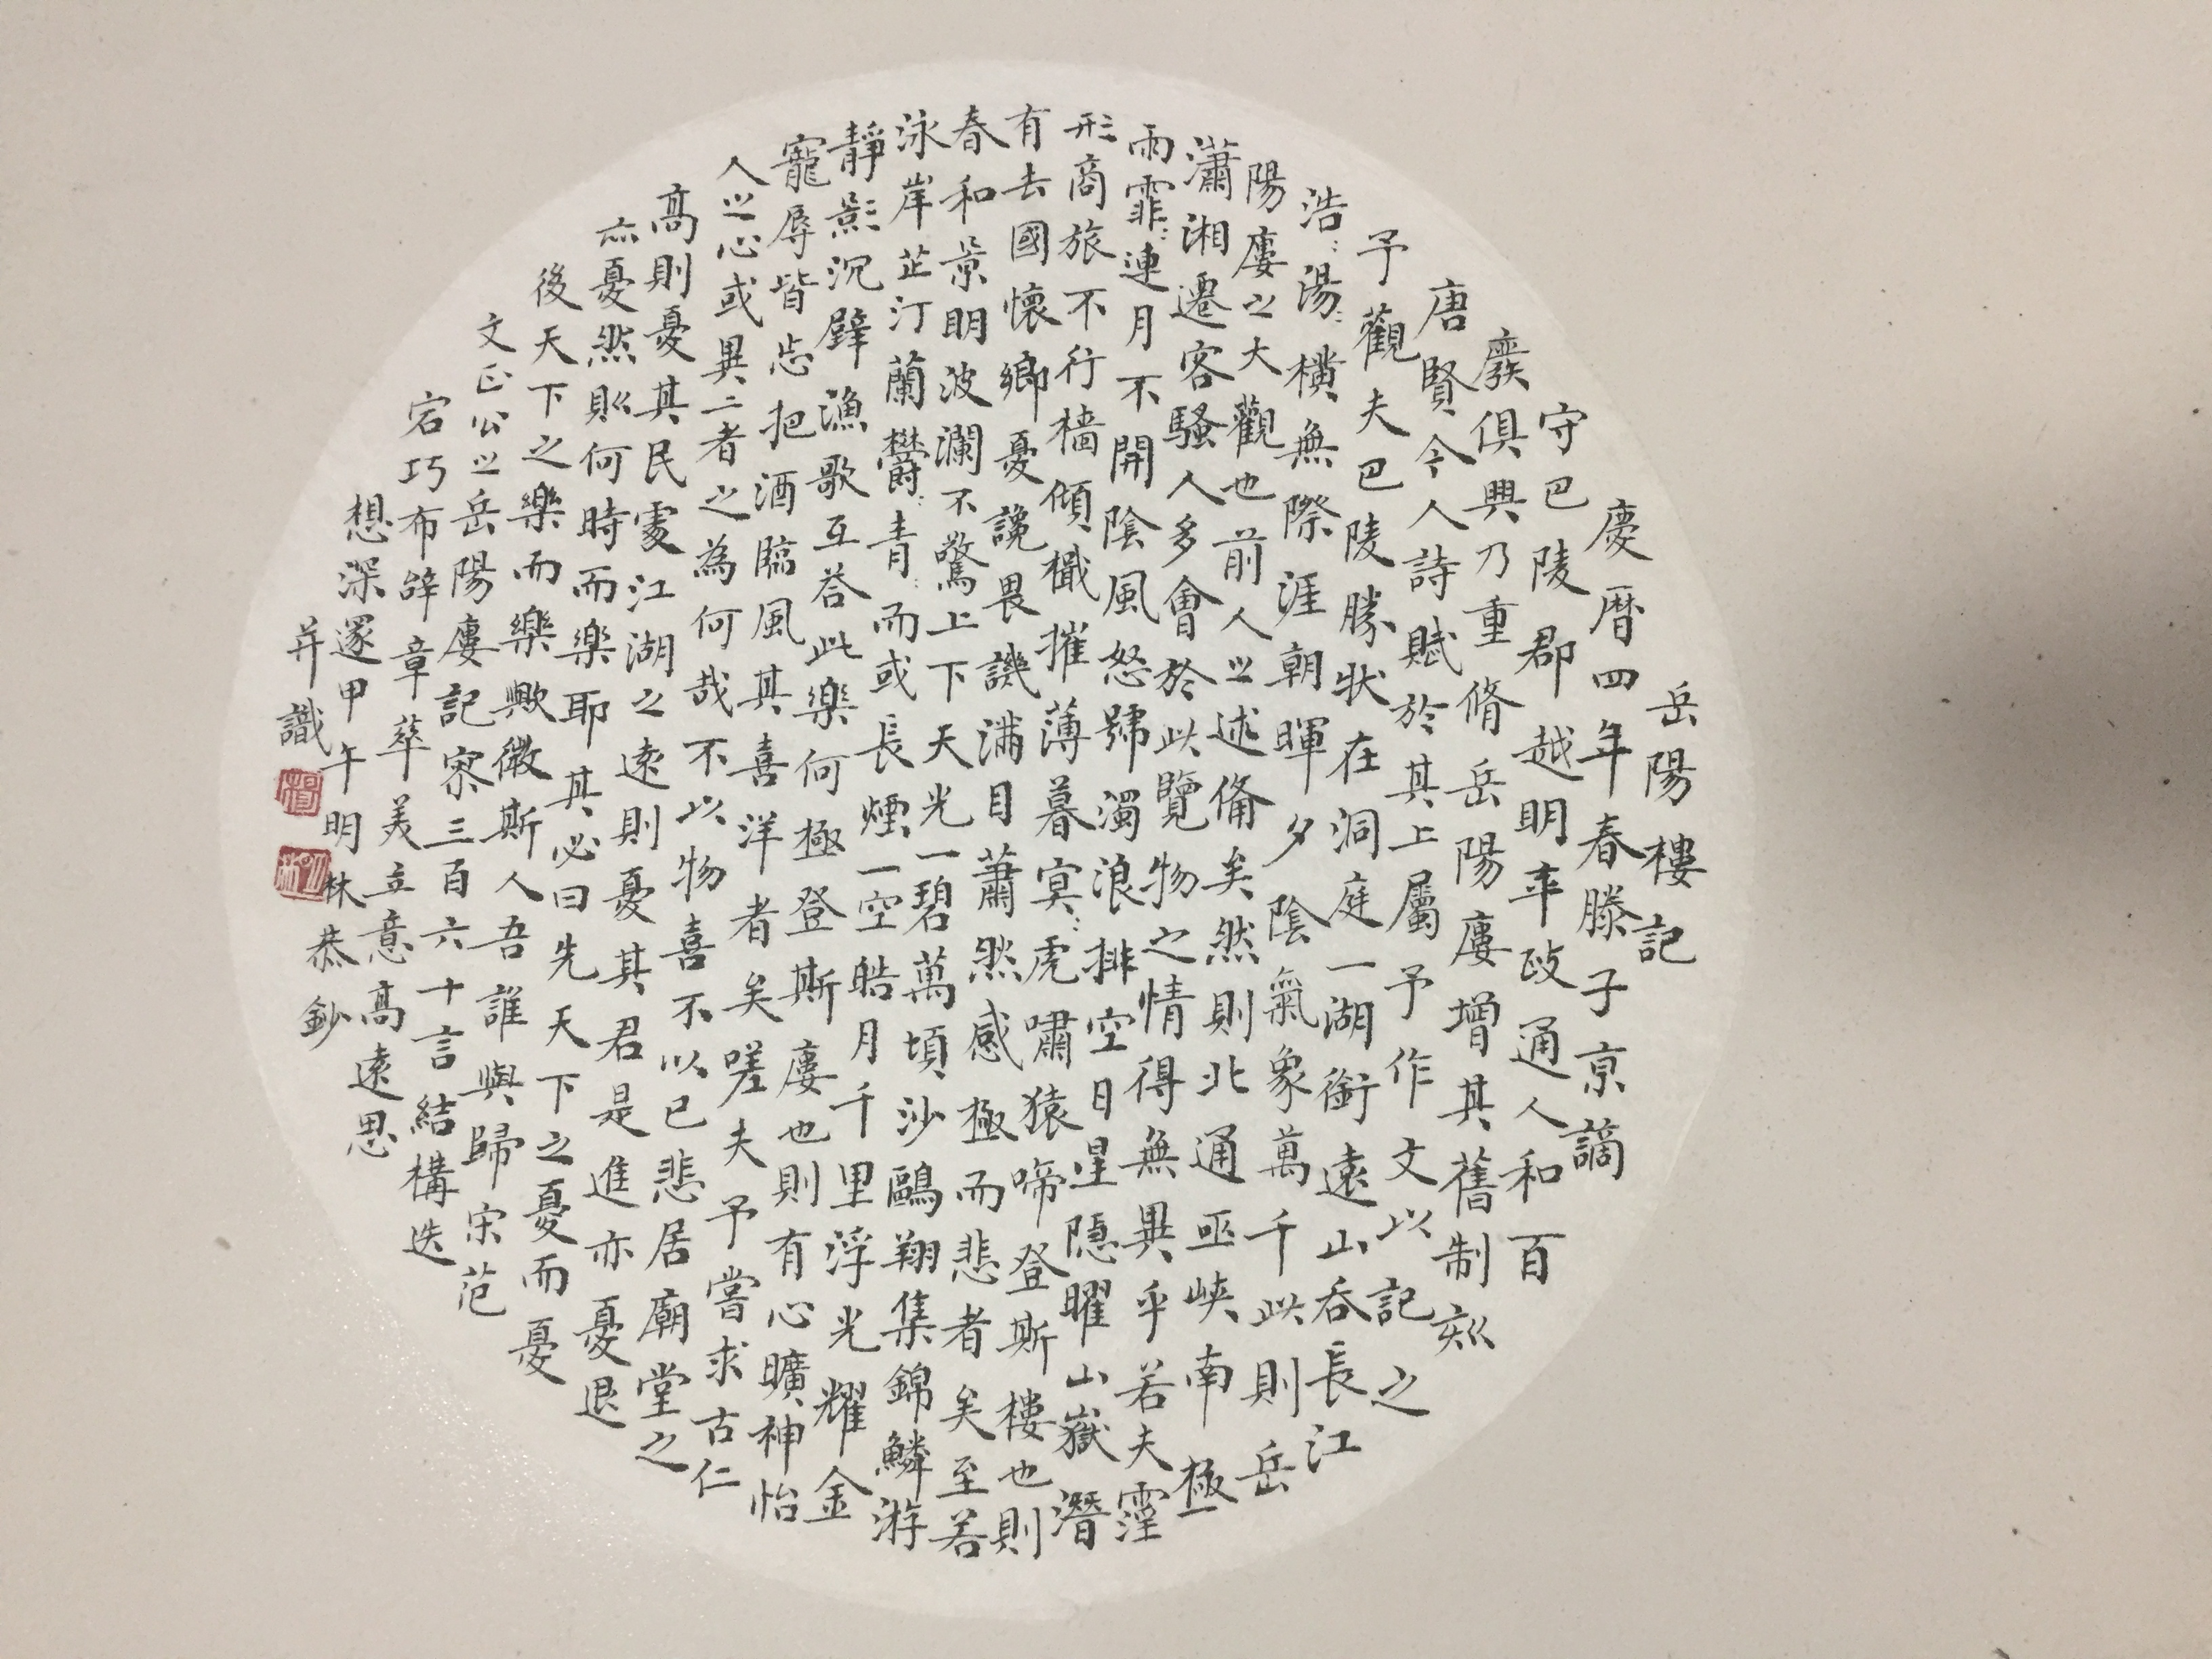 岳陽樓記
慶暦四年春滕子京謫
守巴陵郡越明年政通人和百
廢俱興乃重脩岳陽廔增其舊制刻
唐賢今人詩賦於其上屬予作文以記之
予觀夫巴陵勝狀在洞庭一湖銜遠山吞長江
浩〻湯〻橫無際涯朝暉夕陰氣象萬千此則岳
陽廔之大觀也前人之述備矣然則北通巫峽南極
瀟湘遷客騷人多會於此覽物之情得無異乎若夫霪
雨霏〻連月不開陰風怒號濁浪排空日星隱曜山嶽潛
形商旅不行檣傾檝摧薄暮冥〻虎嘯猿啼登斯樓也則
有去國懷鄉憂讒畏譏滿目蕭然感極而悲者矣至若
春和景明波瀾不驚上下天光一碧萬頃沙鷗翔集錦鱗游
泳岸芷汀蘭鬱〻青〻而或長煙一空皓月千里浮光耀金
靜影沉璧漁歌互答此樂何極登斯廔也則有心曠神怡
寵辱皆忘把酒臨風其喜洋者矣嗟夫予嘗求古仁
人之心或異二者之為何哉不以物喜不以己悲居廟堂之
高則憂其民處江湖之遠則憂其君是進亦憂退
亦憂然則何時而樂耶其必曰先天下之憂而憂
後天下之樂而樂歟微斯人吾誰與歸宋范
文正公之岳陽廔記察三百六十言結構迭
宕巧布辭章萃美立意高遠思
想深邃甲午明林恭鈔
并識